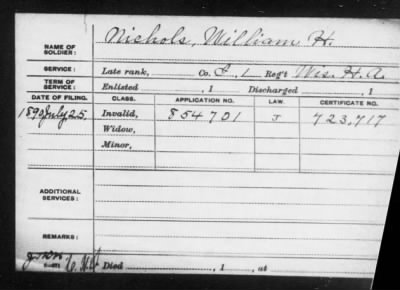 Nichols, William H.
NAME OF SOLDIER:
SERVICE: Late rank, Co. I, 1 Reg't Wis. H. A.
TERM OF SERVICE: Enlisted , 1 Discharged , 1
DATE OF FILING. CLASS. APPLICATION NO. LAW. CERTIFICATE NO.
July 25. Invalid, 854701 J 723,717
Widow,
Minor,
ADDITIONAL SERVICES:
REMARKS:
Died , 1 , at